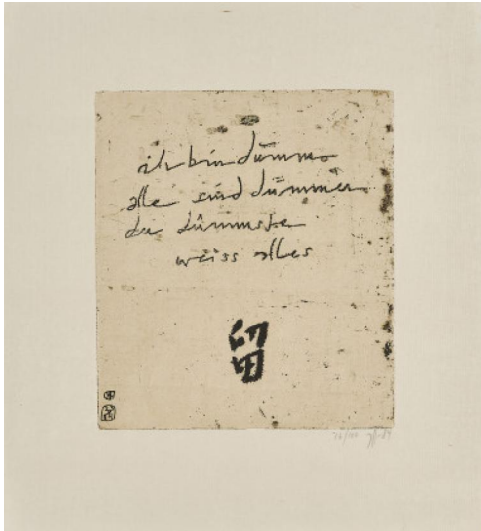 ich bin dumm
alle sind dümmer
der dümmste
weiss alles
留